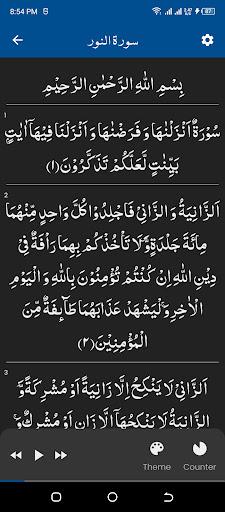 8:54 PM
سورة النور
بِسْمِ اللهِ الرَّحْمٰنِ الرَّحِيْمِ
1
سُوْرَةٌ اَنْزَلْنٰهَا وَ فَرَضْنٰهَا وَ اَنْزَلْنَا فِيْهَاۤ اٰيٰتٍۭ
بَيِّنٰتٍ لَّعَلَّكُمْ تَذَكَّرُوْنَ(۱)
2
اَلزَّانِيَةُ وَ الزَّانِیْ فَاجْلِدُوْا كُلَّ وَاحِدٍ مِّنْهُمَا
مِائَةَ جَلْدَةٍ۪-وَّ لَا تَاْخُذْكُمْ بِهِمَا رَاْفَةٌ فِیْ
دِيْنِ اللهِ اِنْ كُنْتُمْ تُؤْمِنُوْنَ بِاللهِ وَ الْيَوْمِ
الْاٰخِرِۚ-وَ لْيَشْهَدْ عَذَابَهُمَا طَآىٕفَةٌ مِّنَ
الْمُؤْمِنِيْنَ(۲)
3
اَلزَّانِیْ لَا يَنْكِحُ اِلَّا زَانِيَةً اَوْ مُشْرِكَةً٘-وَّ
الزَّانِيَةُ لَا يَنْكِحُهَاۤ اِلَّا زَانٍ اَوْ مُشْرِكٌۚ-وَ
Theme
Counter